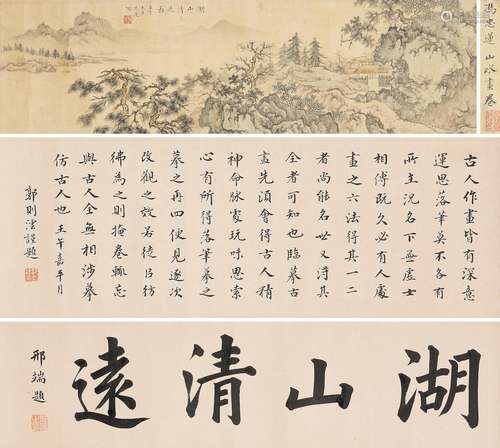 馮忠蓮山水畫卷
古人作畫皆有深意
運思落筆莫不各有
所主況名下無虛士
相傳既久必有人處
畫之六法得其一二
者尚能名世又得其
全者可知也臨摹古
畫先須會得古人精
神命脈處玩味思索
心有所得落筆摹之
摹之再四便見逐次
改觀之效若徒以彷
彿為之則掩卷輒忘
與古人全無相涉摹
仿古人也壬午嘉平月
郭則澐謹題
湖山清遠
邢端題